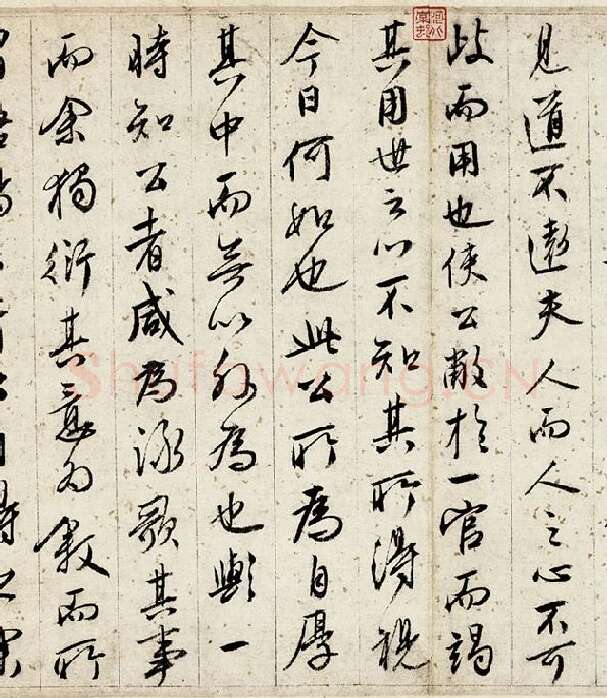 見道不遠夫人而人之心不可
歧而用也使公敝於一官而竭
其用世之心不知其所得視
今日何如也此公所為自厚
其中而無以外為也與一
時知公者咸為詠歌其事
而余獨衍其意為叙而所
Shufawang.CN